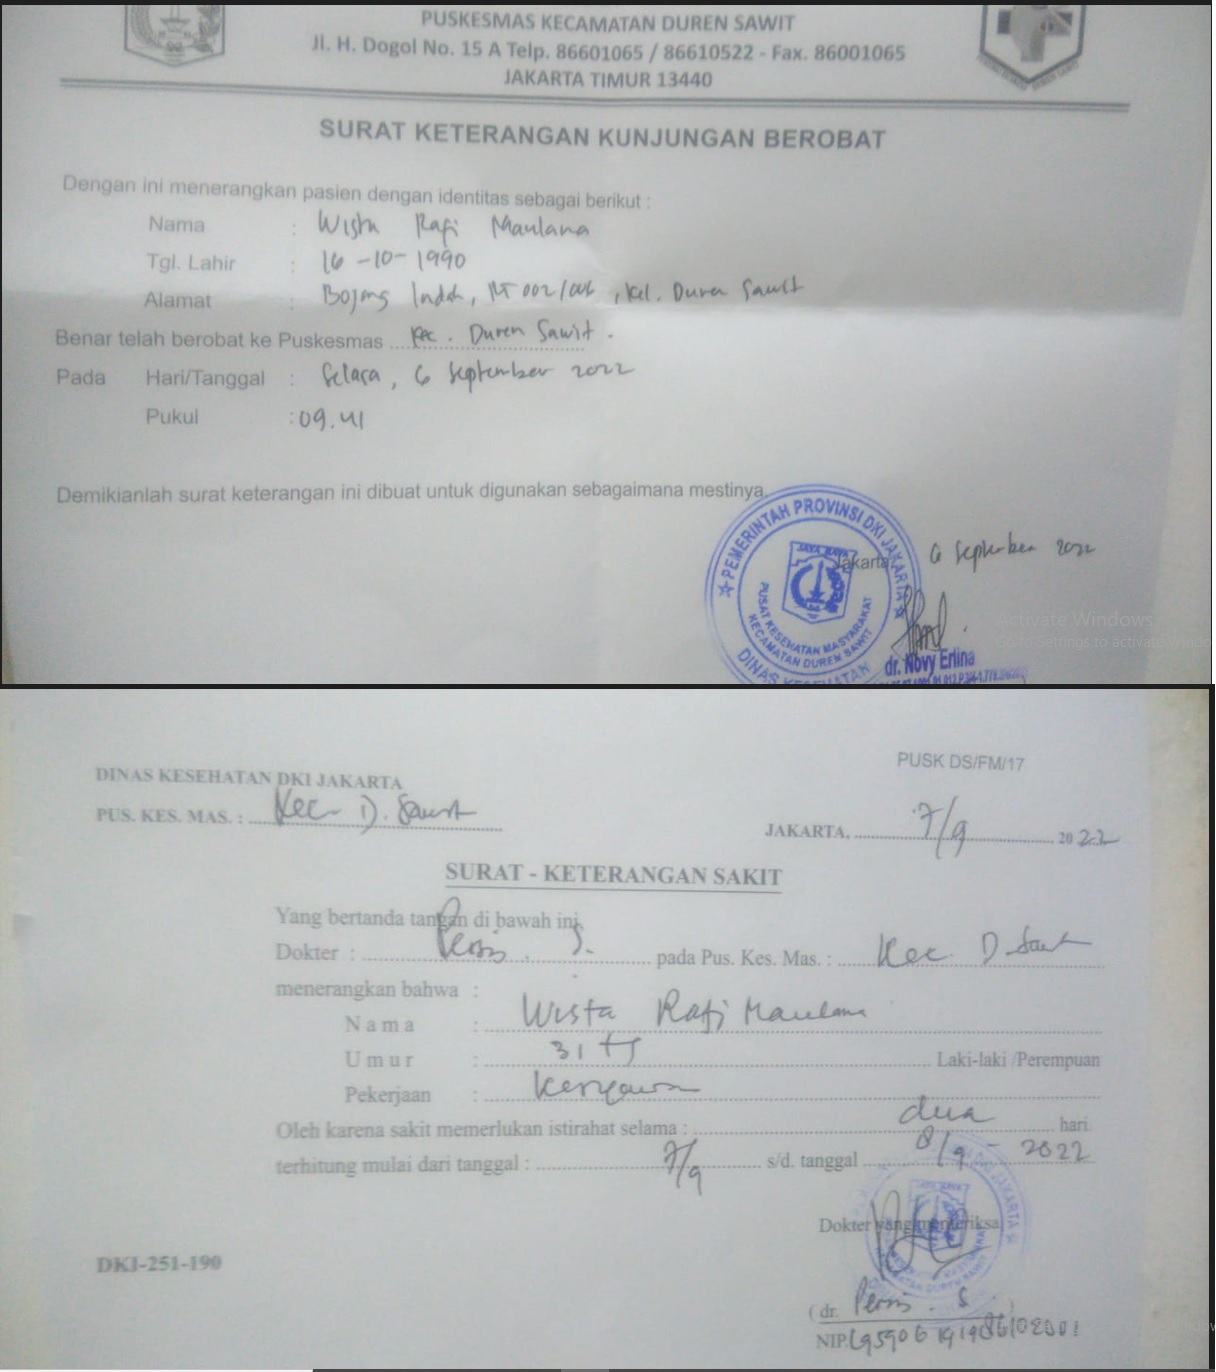 PUSKESMAS KECAMATAN DUREN SAWIT
Jl. H. Dogol No. 15 A Telp. 86601065 / 86610522 - Fax. 86001065
JAKARTA TIMUR 13440
SURAT KETERANGAN KUNJUNGAN BEROBAT
Dengan ini menerangkan pasien dengan identitas sebagai berikut :
Nama : Wista Rafi Maulana
Tgl. Lahir : 16-10-1990
Alamat : Bojong Indah, RT 002/006, Kel. Duren Sawit
Benar telah berobat ke Puskesmas Kec. Duren Sawit.
Pada Hari/Tanggal : Selasa, 6 September 2022
Pukul : 09.41
Demikianlah surat keterangan ini dibuat untuk digunakan sebagaimana mestinya.
PEMERINTAH PROVINSI DKI JAKARTA
JAYA RAYA
PUSAT KESEHATAN MASYARAKAT
KECAMATAN DUREN SAWIT
DINAS KESEHATAN
Jakarta, 6 September 2022
Activate Windows
Go to Settings to activate
dr. Novy Erlina
PUSK DS/FM/17
DINAS KESEHATAN DKI JAKARTA
PUS. KES. MAS. : Kec D. Sawit
JAKARTA, 7/9 2022
SURAT - KETERANGAN SAKIT
Yang bertanda tangan di bawah ini,
Dokter : S. pada Pus. Kes. Mas. : Kec. D. Sawit
menerangkan bahwa :
Nama : Wista Rafi Maulana
Umur : 31 th Laki-laki /Perempuan
Pekerjaan : Karyawan
Oleh karena sakit memerlukan istirahat selama : dua hari
terhitung mulai dari tanggal : 7/9 s/d. tanggal 8/9 - 2022
Dokter yang memeriksa
DKI-251-190
( dr. S. )
NIP.